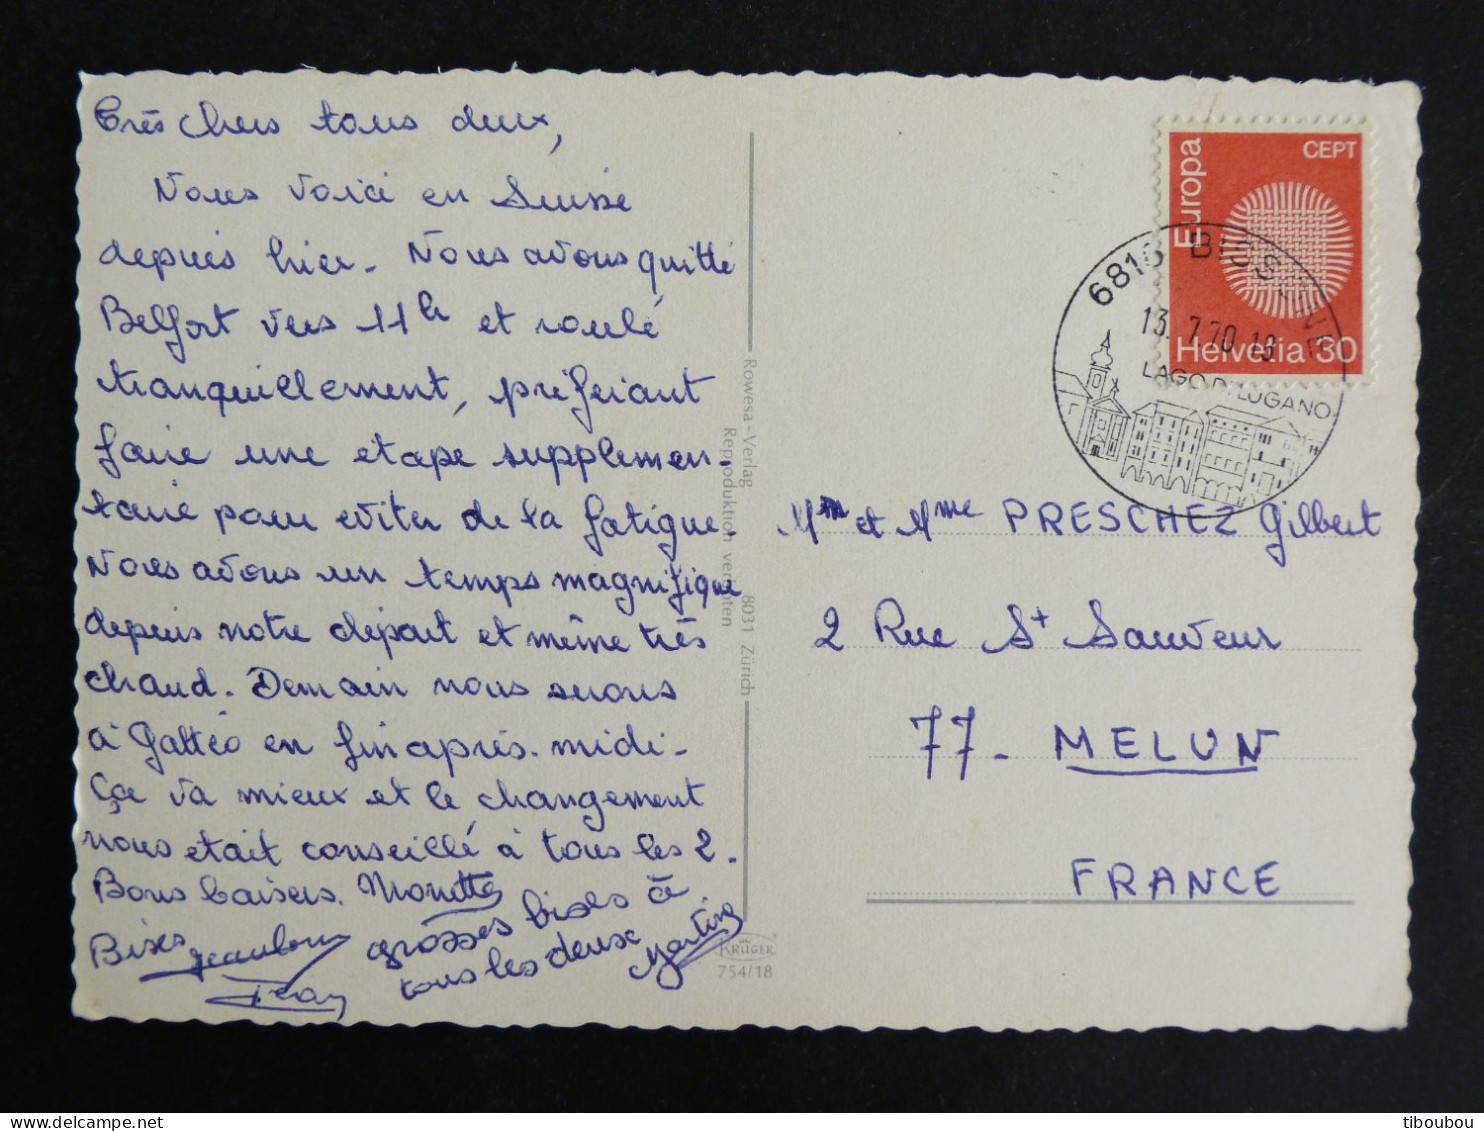 Très chers tous deux,
Nous voici en Suisse
depuis hier. Nous avons quitté
Belfort vers 11h et roulé
tranquillement, préférant
faire une etape supplemen-
taire pour eviter de la fatigue.
Nous avons un temps magnifique
depuis notre départ et même très
chaud. Demain nous serons
à Gattéo en fin après-midi-
Ça va mieux et le changement
nous etait conseillé à tous les 2.
Bons baisers. Monette
Bises
grosses bises à
tous les deux Martine
Rowesa-Verlag 8031 Zürich
Reproduktion verboten
KRÜGER
754/18
Europa
CEPT
Helvetia 30
6816 BISSONE
13.7.70.18
LAGO DI LUGANO
Mm et Mme PRESCHEZ Gilbert
2 Rue St Sauveur
77- MELUN
FRANCE
tiboubou